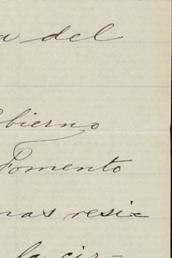 a del
bierno
Fomento
nas resi=
la cir-